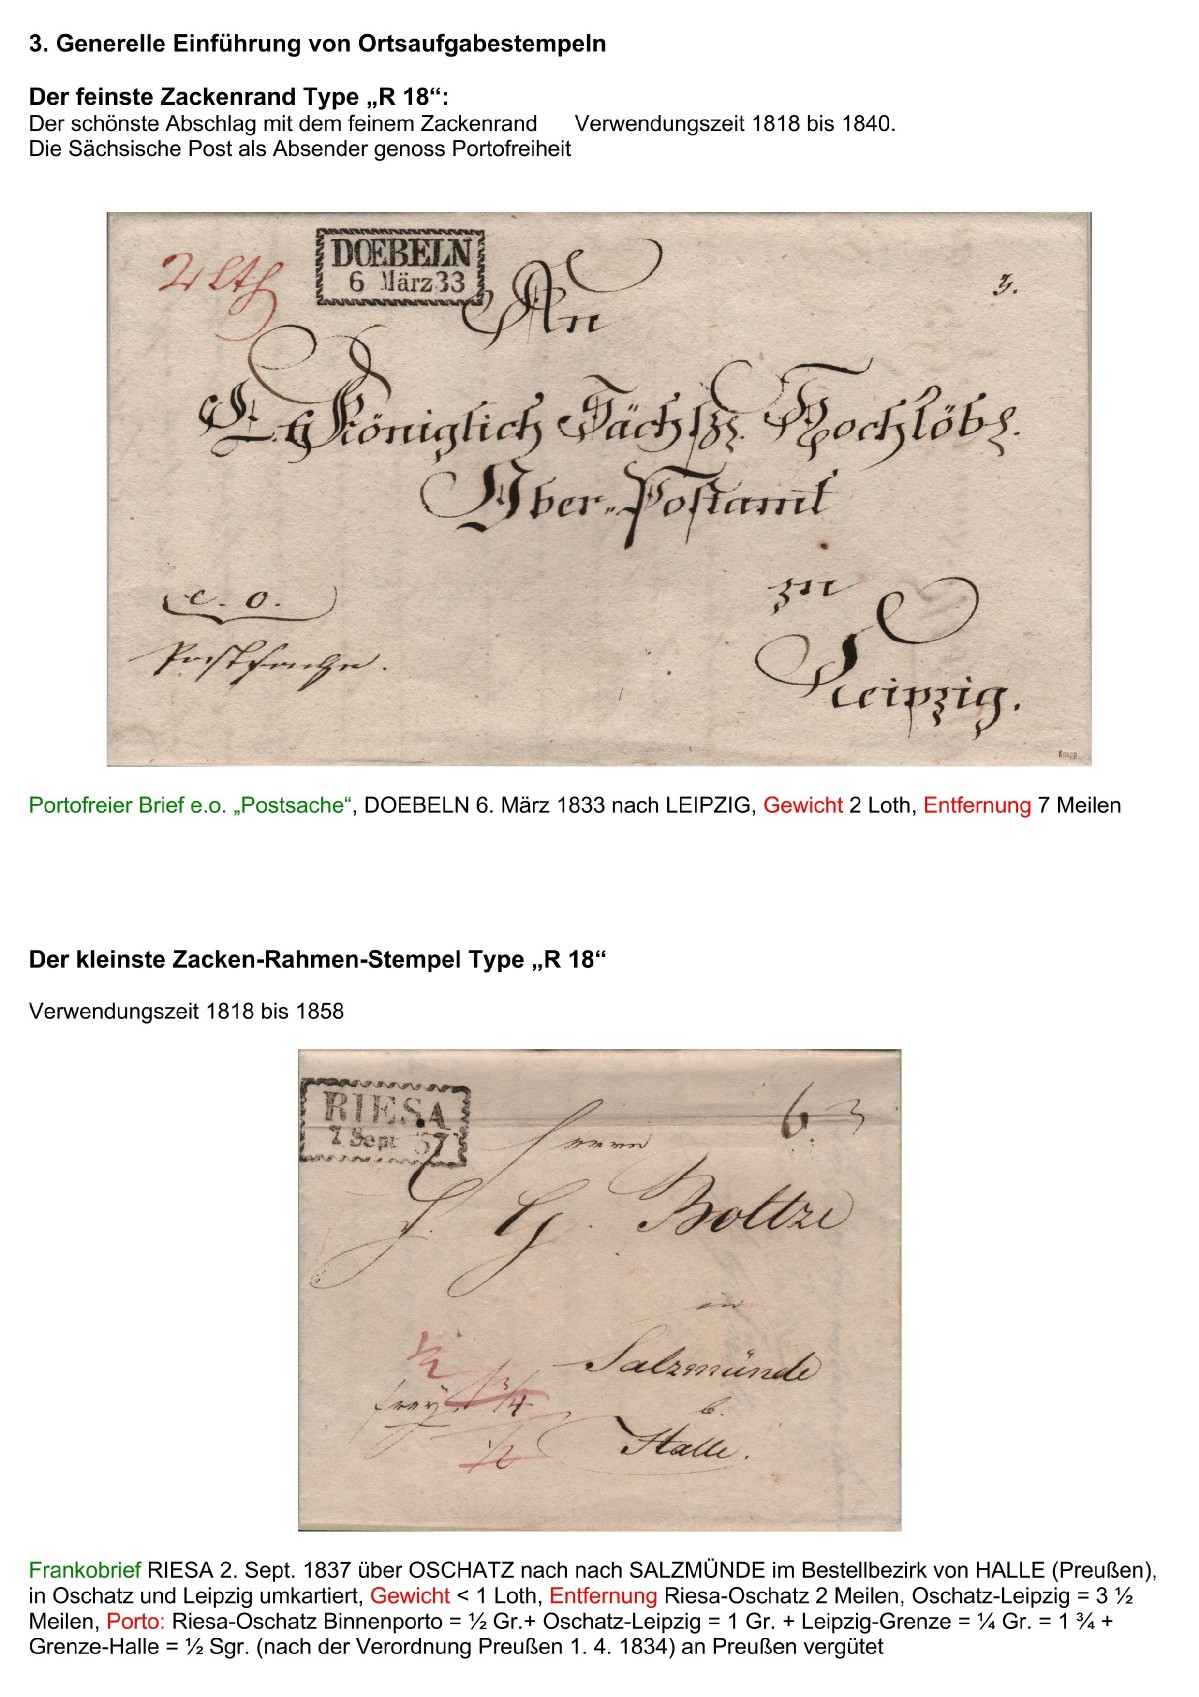 3. Generelle Einführung von Ortsaufgabestempeln
Der feinste Zackenrand Type „R 18“:
Der schönste Abschlag mit dem feinem Zackenrand Verwendungszeit 1818 bis 1840.
Die Sächsische Post als Absender genoss Portofreiheit
DOEBELN
6 März 33
2 Lth
3.
An
Königlich Sächß. Hochlöbl.
Ober-Postamt
zu
Leipzig.
e. o.
Postsache.
Knapp
Portofreier Brief e.o. „Postsache“, DOEBELN 6. März 1833 nach LEIPZIG, Gewicht 2 Loth, Entfernung 7 Meilen
Der kleinste Zacken-Rahmen-Stempel Type „R 18“
Verwendungszeit 1818 bis 1858
RIESA
2 Sept 37
6. 3
Herrn
J. G. Boltze
in
Salzmünde
b.
Halle.
1/2
frey. 1 3/4
1/2
Frankobrief RIESA 2. Sept. 1837 über OSCHATZ nach nach SALZMÜNDE im Bestellbezirk von HALLE (Preußen),
in Oschatz und Leipzig umkartiert, Gewicht < 1 Loth, Entfernung Riesa-Oschatz 2 Meilen, Oschatz-Leipzig = 3 ½
Meilen, Porto: Riesa-Oschatz Binnenporto = ½ Gr.+ Oschatz-Leipzig = 1 Gr. + Leipzig-Grenze = ¼ Gr. = 1 ¾ +
Grenze-Halle = ½ Sgr. (nach der Verordnung Preußen 1. 4. 1834) an Preußen vergütet